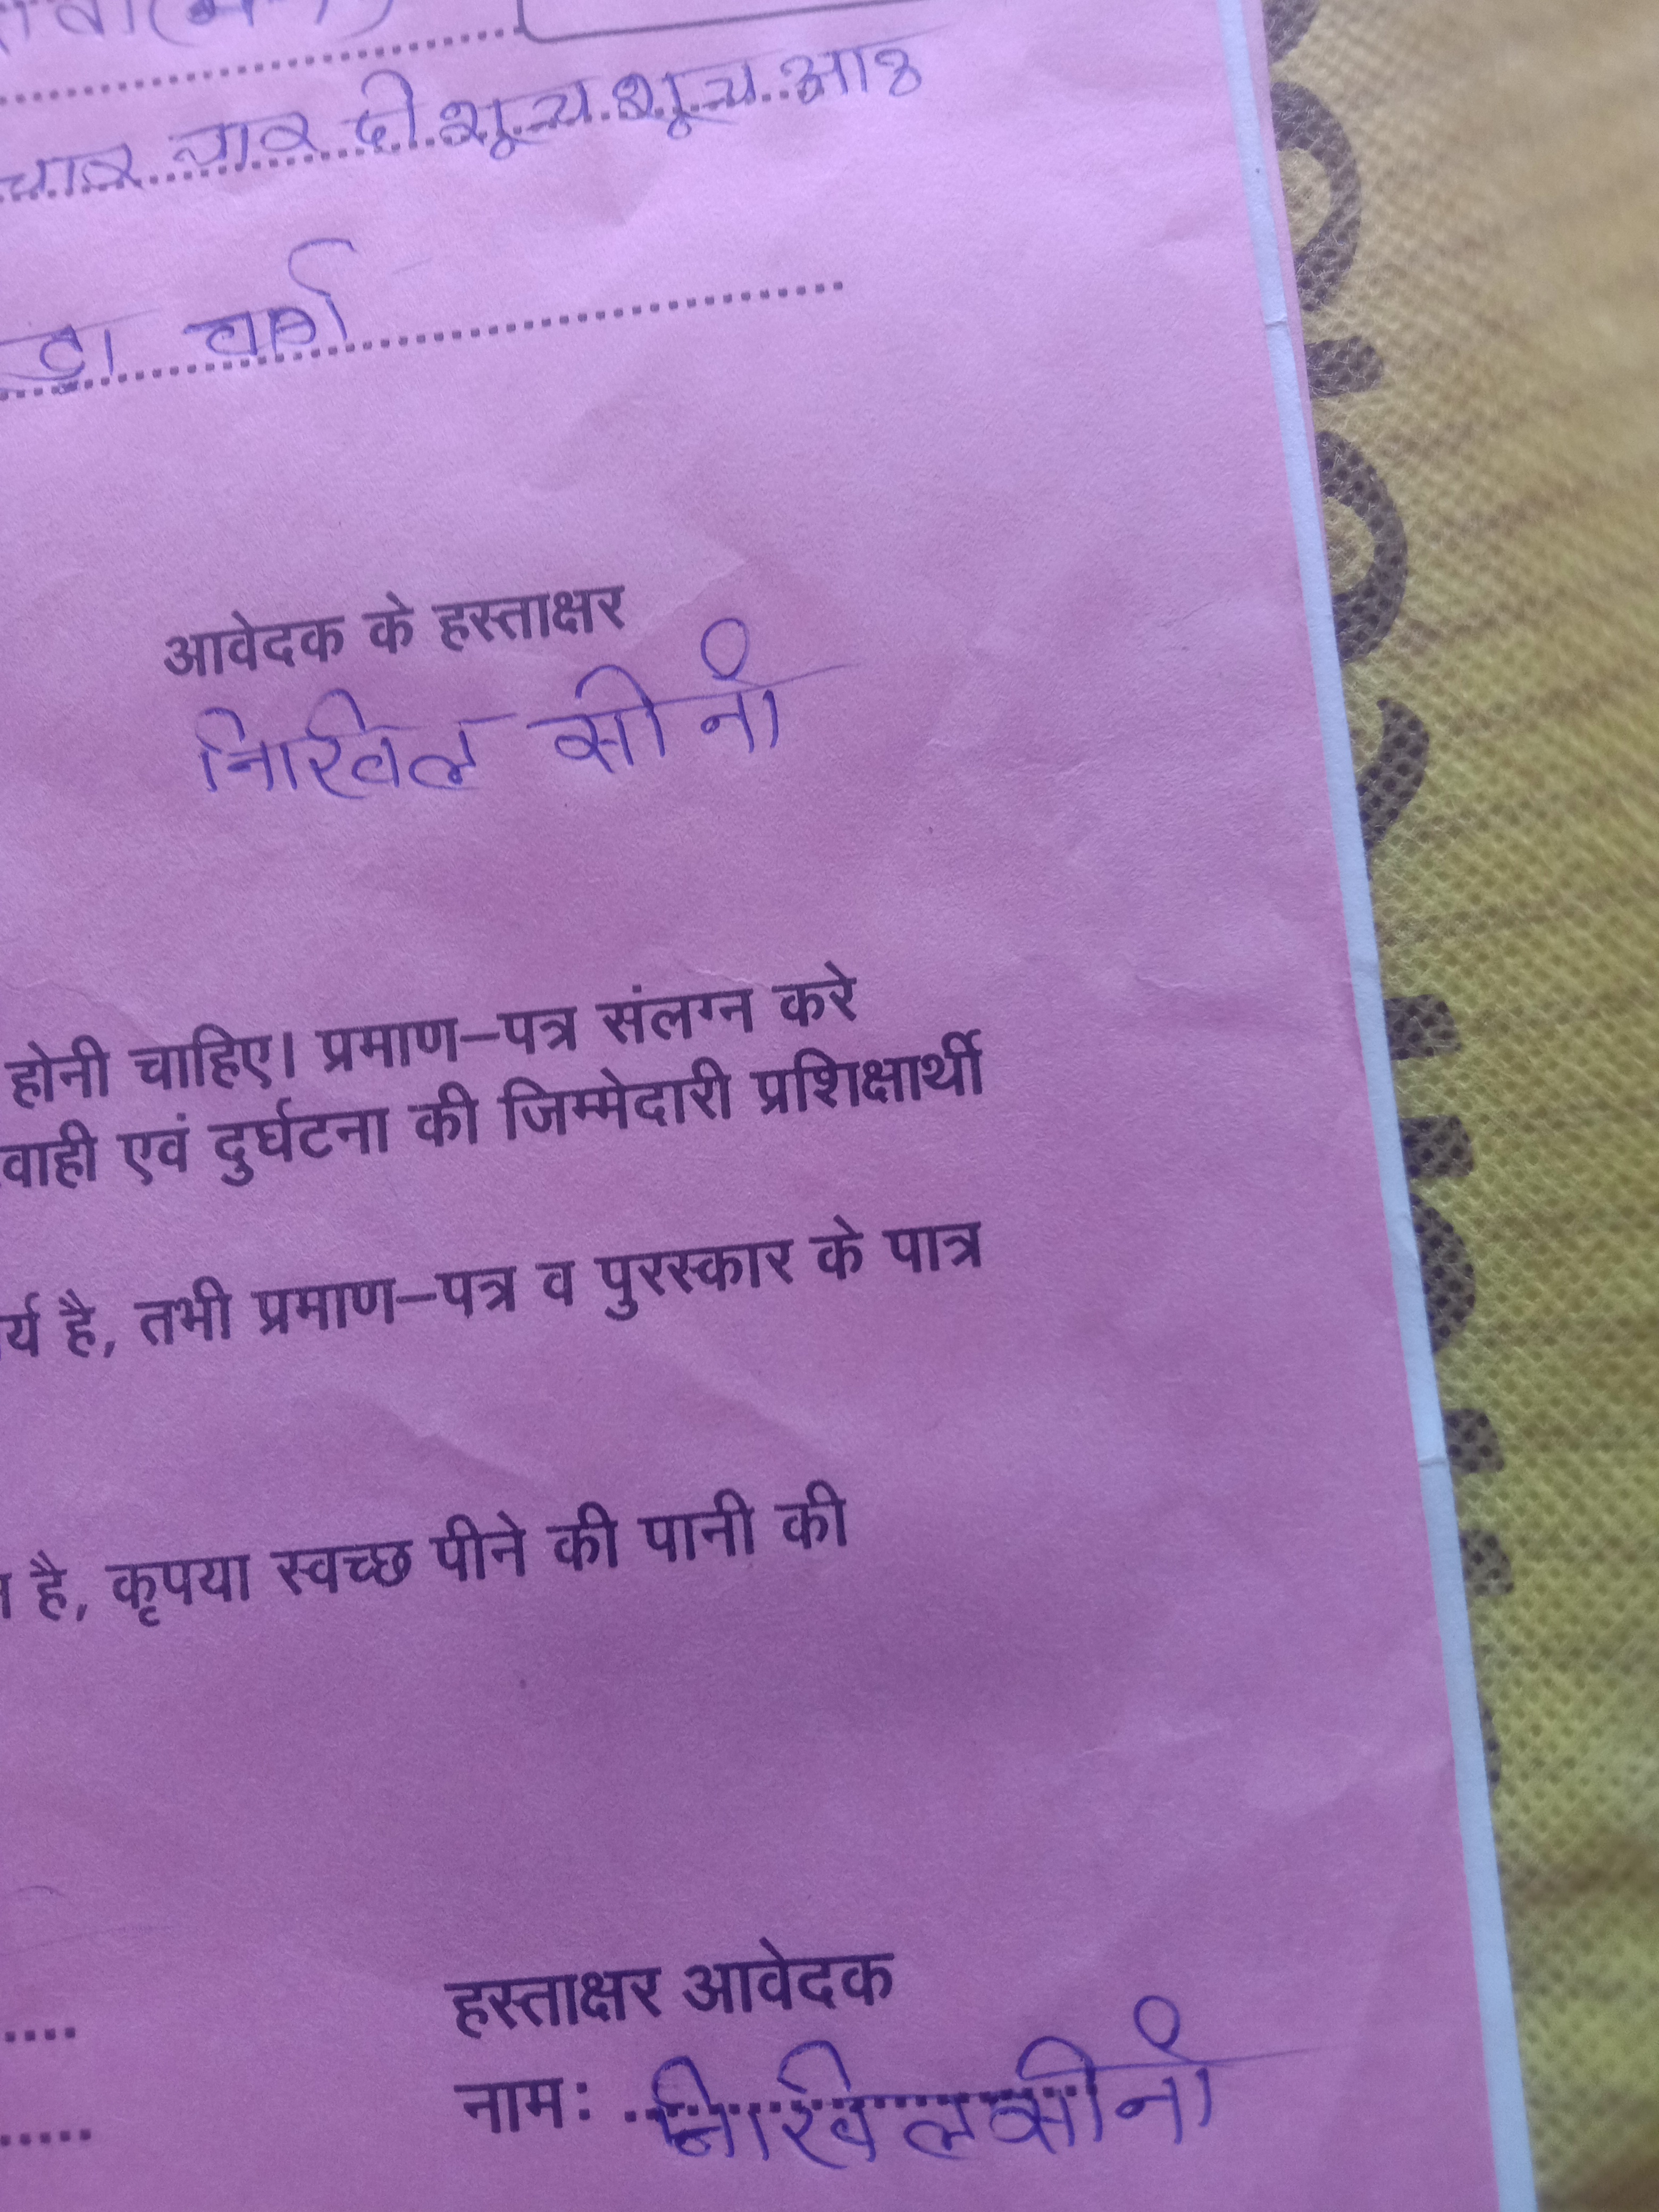 चार चार दो शून्य शून्य आठ
वर्ग
आवेदक के हस्ताक्षर
निखिल सोनी
होनी चाहिए। प्रमाण–पत्र संलग्न करे
वाही एवं दुर्घटना की जिम्मेदारी प्रशिक्षार्थी
र्य है, तभी प्रमाण–पत्र व पुरस्कार के पात्र
है, कृपया स्वच्छ पीने की पानी की
हस्ताक्षर आवेदक
नामः निखिल सोनी